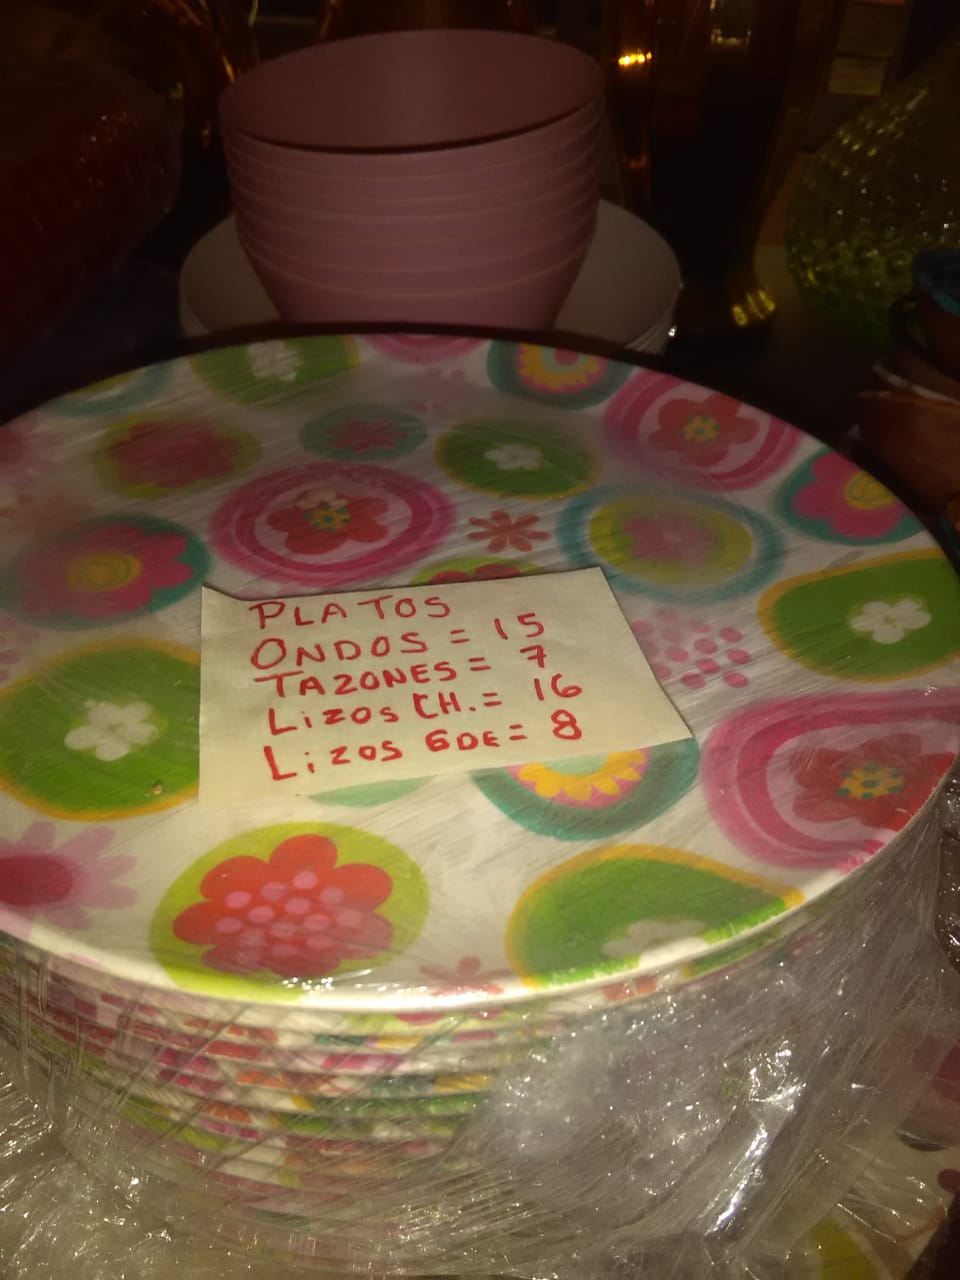 PLATOS
ONDOS = 15
TAZONES = 7
LizOS CH. = 16
LizOS GDE = 8